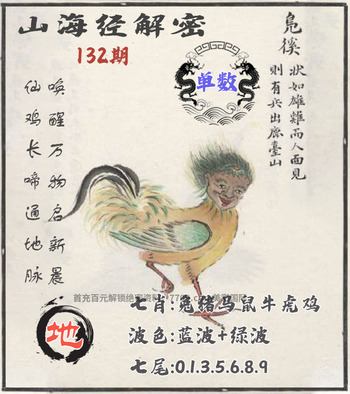 山海经解密
132期
单数
鳧徯
狀如雄雞而人面見
則有兵出鹿臺山
仙鸡长啼通地脉
唤醒万物启新晨
首充百元解锁绝密资料
地
七肖:兔猪马鼠牛虎鸡
波色:蓝波+绿波
七尾:0.1.3.5.6.8.9